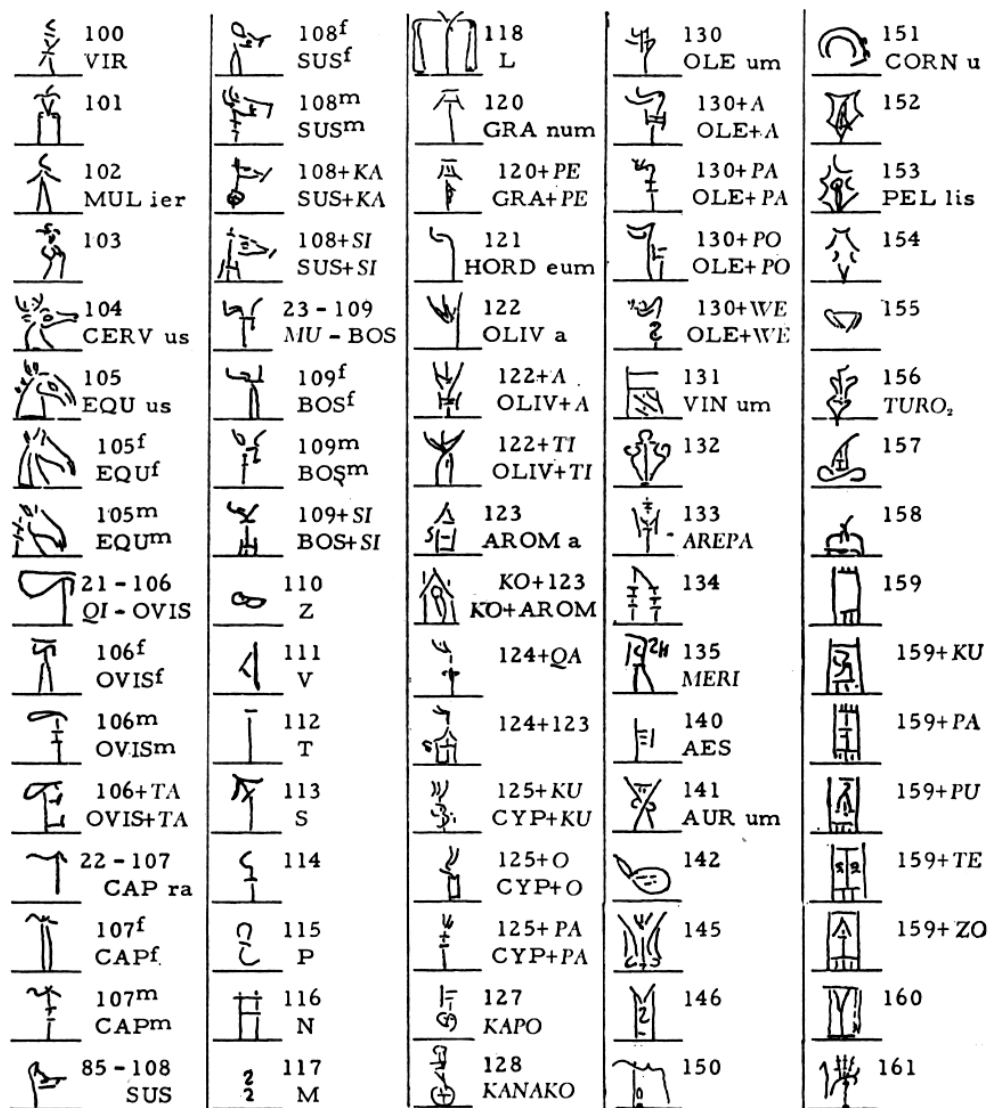 100
VIR
101
102
MUL ier
103
104
CERV us
105
EQU us
105f
EQUf
105m
EQUm
21 - 106
QI - OVIS
106f
OVISf
106m
OVISm
106+TA
OVIS+TA
22 - 107
CAP ra
107f
CAPf
107m
CAPm
85 - 108
SUS
108f
SUSf
108m
SUSm
108+KA
SUS+KA
108+SI
SUS+SI
23 - 109
MU - BOS
109f
BOSf
109m
BOSm
109+SI
BOS+SI
110
Z
111
V
112
T
113
S
114
115
P
116
N
117
M
118
L
120
GRA num
120+PE
GRA+PE
121
HORD eum
122
OLIV a
122+A
OLIV+A
122+TI
OLIV+TI
123
AROM a
KO+123
KO+AROM
124+QA
124+123
125+KU
CYP+KU
125+O
CYP+O
125+PA
CYP+PA
127
KAPO
128
KANAKO
130
OLE um
130+A
OLE+A
130+PA
OLE+PA
130+PO
OLE+PO
130+WE
OLE+WE
131
VIN um
132
133
AREPA
134
135
MERI
140
AES
141
AUR um
142
145
146
150
151
CORN u
152
153
PEL lis
154
155
156
TURO₂
157
158
159
159+KU
159+PA
159+PU
159+TE
159+ZO
160
161